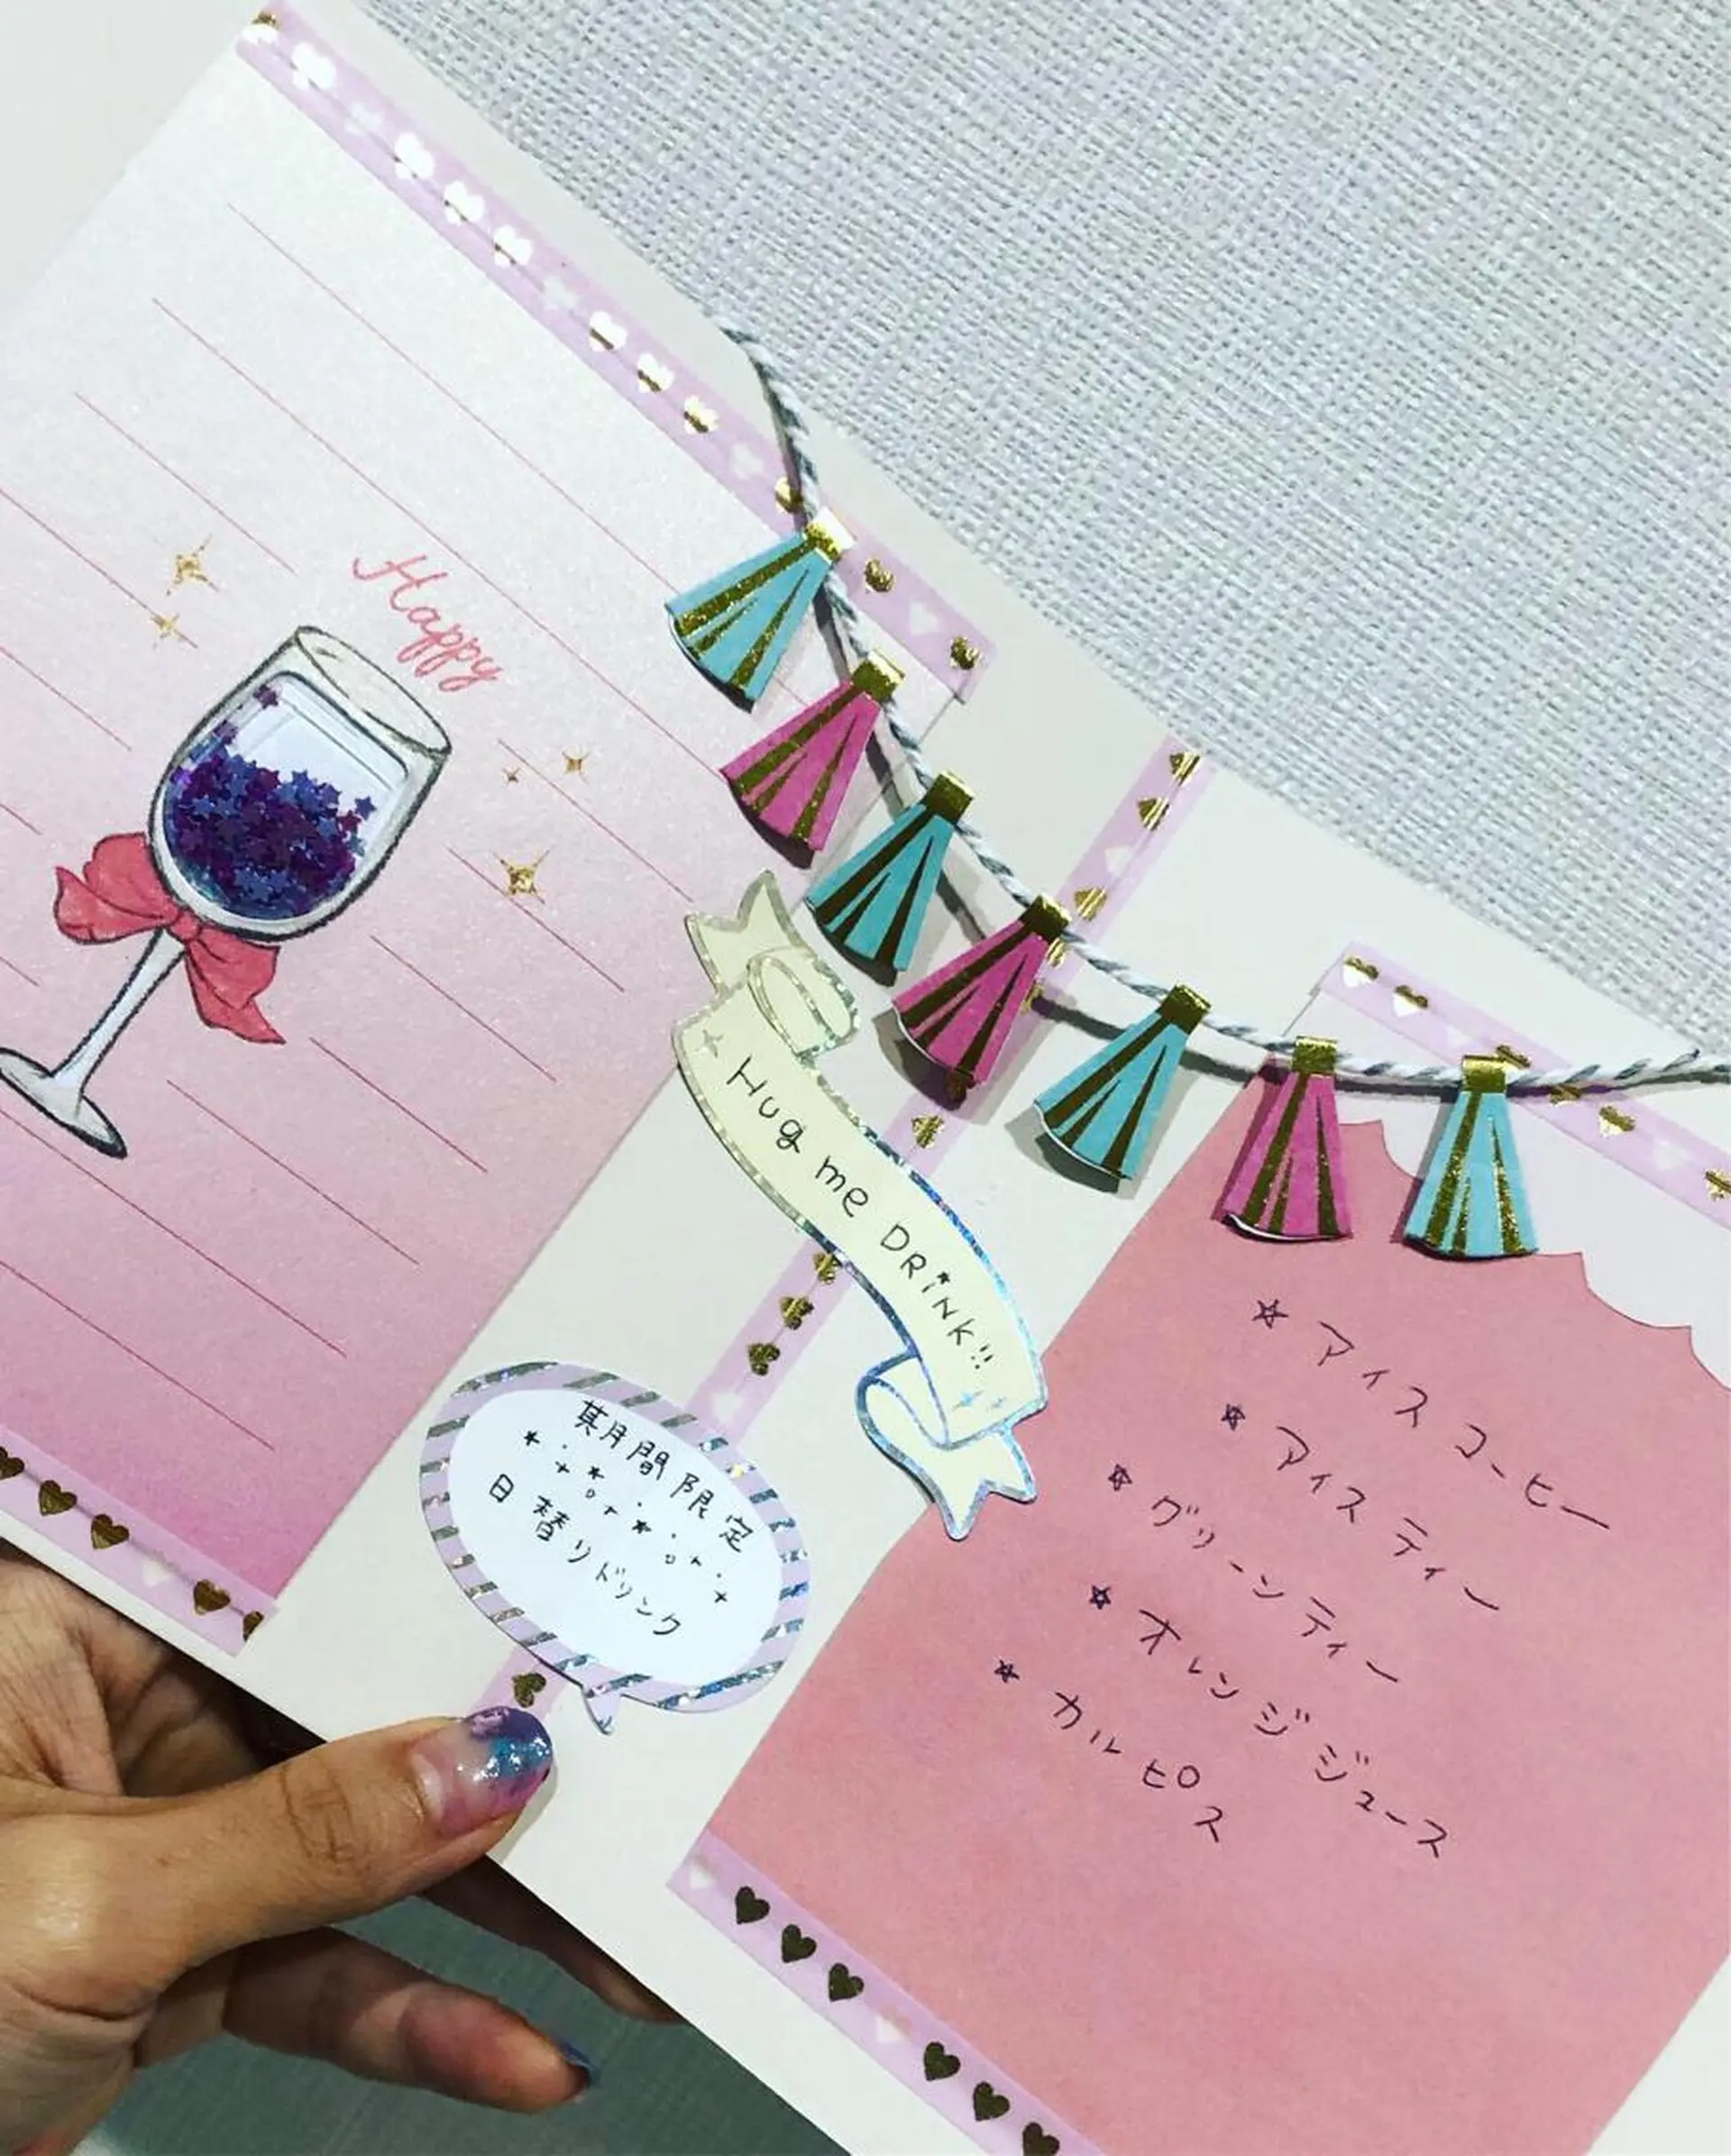 Happy
Hug me DRiNK!!
期間限定
or
or
日替りドリンク
☆ アイスコーヒー
☆ アイスティー
☆ グリーンティー
☆ オレンジジュース
☆ カルピス